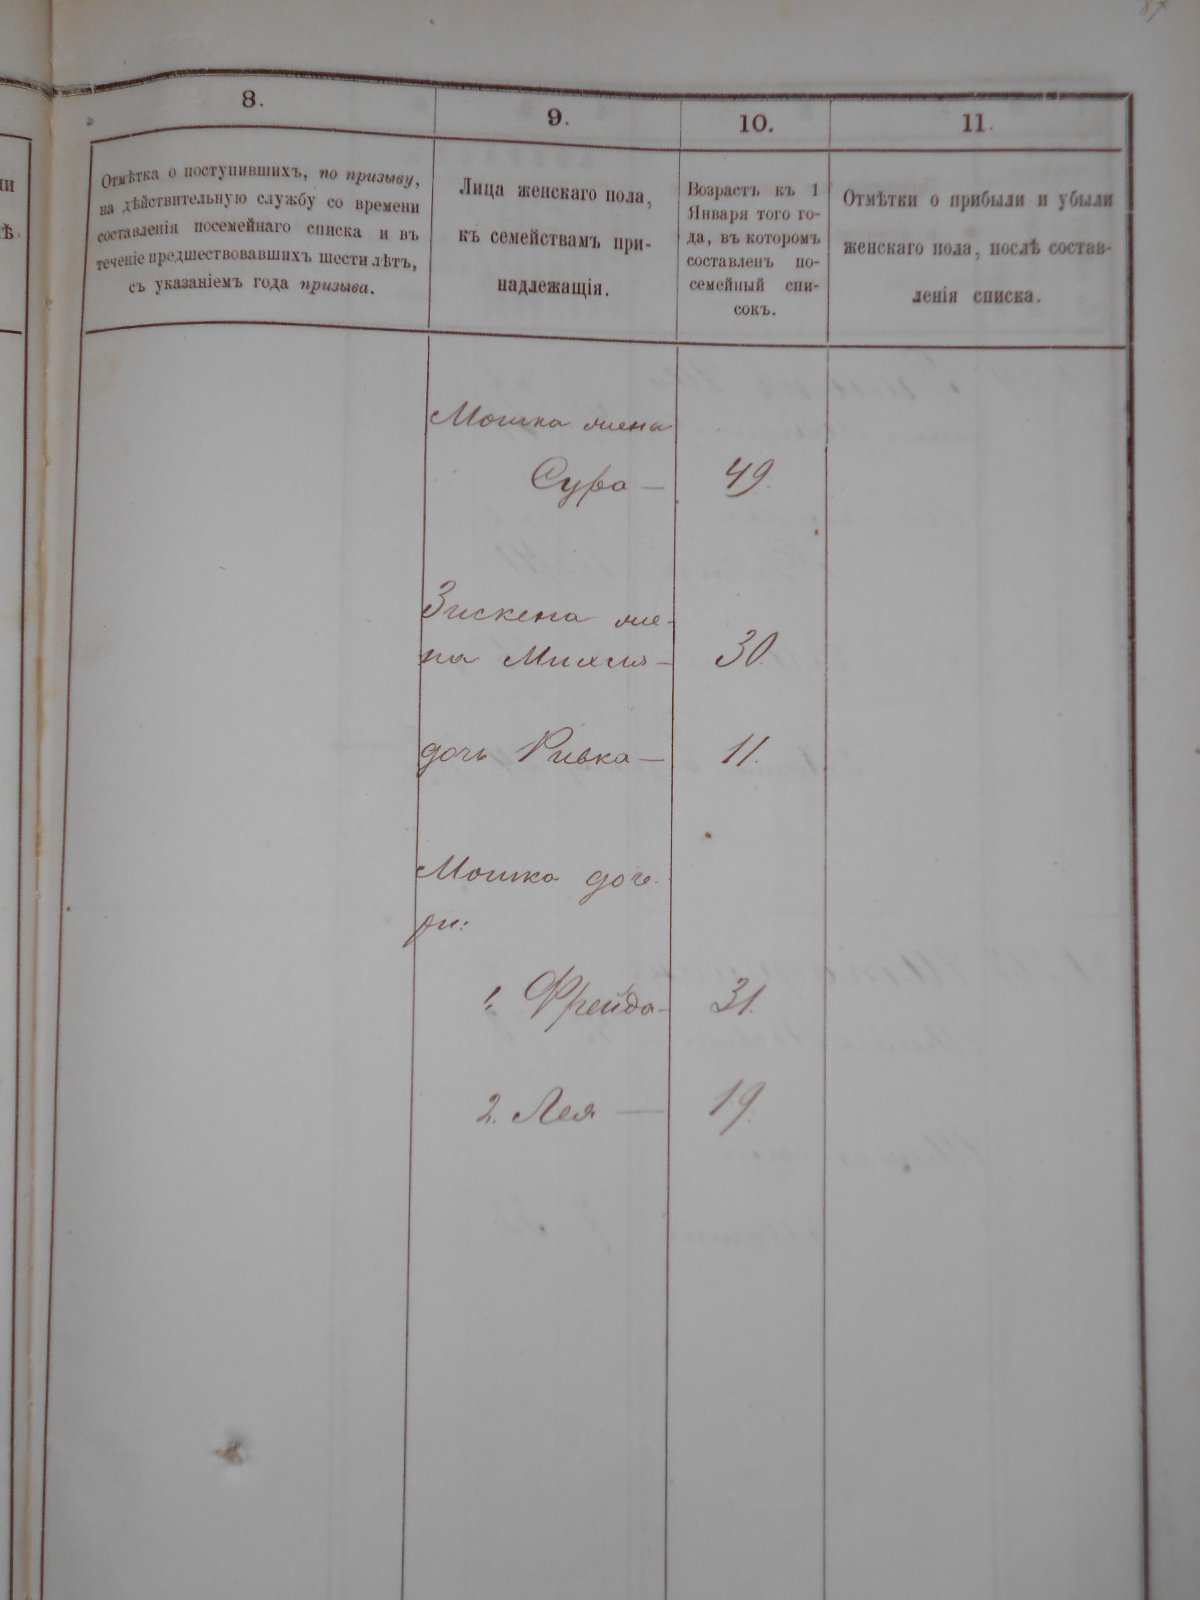 87
8.
9.
10.
11.
Отмѣтка о поступившихъ, по призыву,
на дѣйствительную службу со времени
составленія посемейнаго списка и въ
теченіе предшествовавшихъ шести лѣтъ,
съ указаніемъ года призыва.
Лица женскаго пола,
къ семействамъ при-
надлежащія.
Возрастъ къ 1
Января того го-
да, въ которомъ
составленъ по-
семейный спи-
сокъ.
Отмѣтки о прибыли и убыли
женскаго пола, послѣ состав-
ленія списка.
Мошка жена
Сура — 49.
Зискена же-
на Михля — 30.
дочь Ривка — 11.
Мошка доче-
ри:
1. Фрейда — 31.
2. Лея — 19.